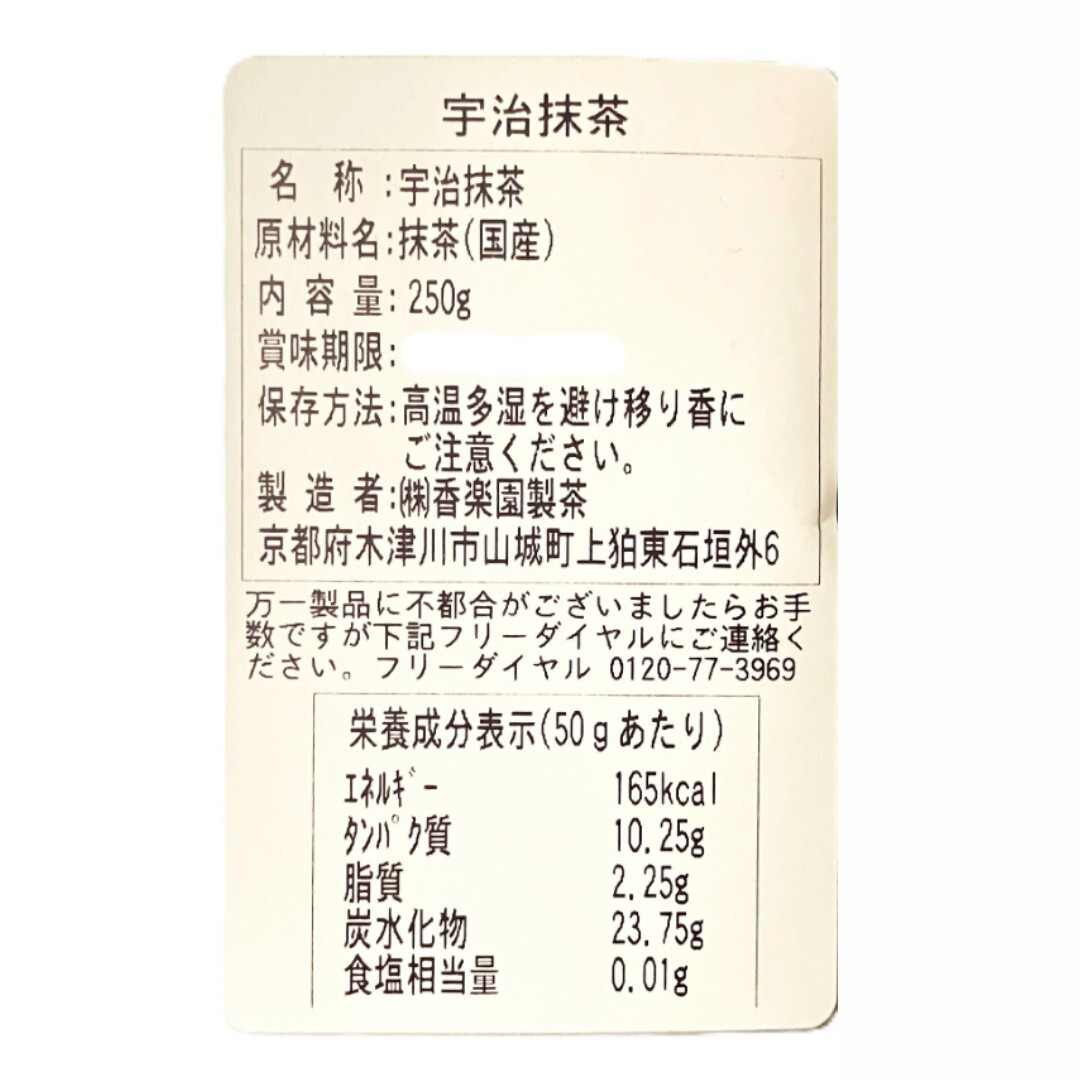 宇治抹茶
名 称:宇治抹茶
原材料名:抹茶(国産)
内 容 量: 250g
賞味期限:
保存方法:高温多湿を避け移り香に
ご注意ください。
製 造 者:㈱香楽園製茶
京都府木津川市山城町上狛東石垣外6
万一製品に不都合がございましたらお手
数ですが下記フリーダイヤルにご連絡く
ださい。フリーダイヤル 0120-77-3969
栄養成分表示(50gあたり)
エネルギー 165kcal
タンパク質 10.25g
脂質 2.25g
炭水化物 23.75g
食塩相当量 0.01g